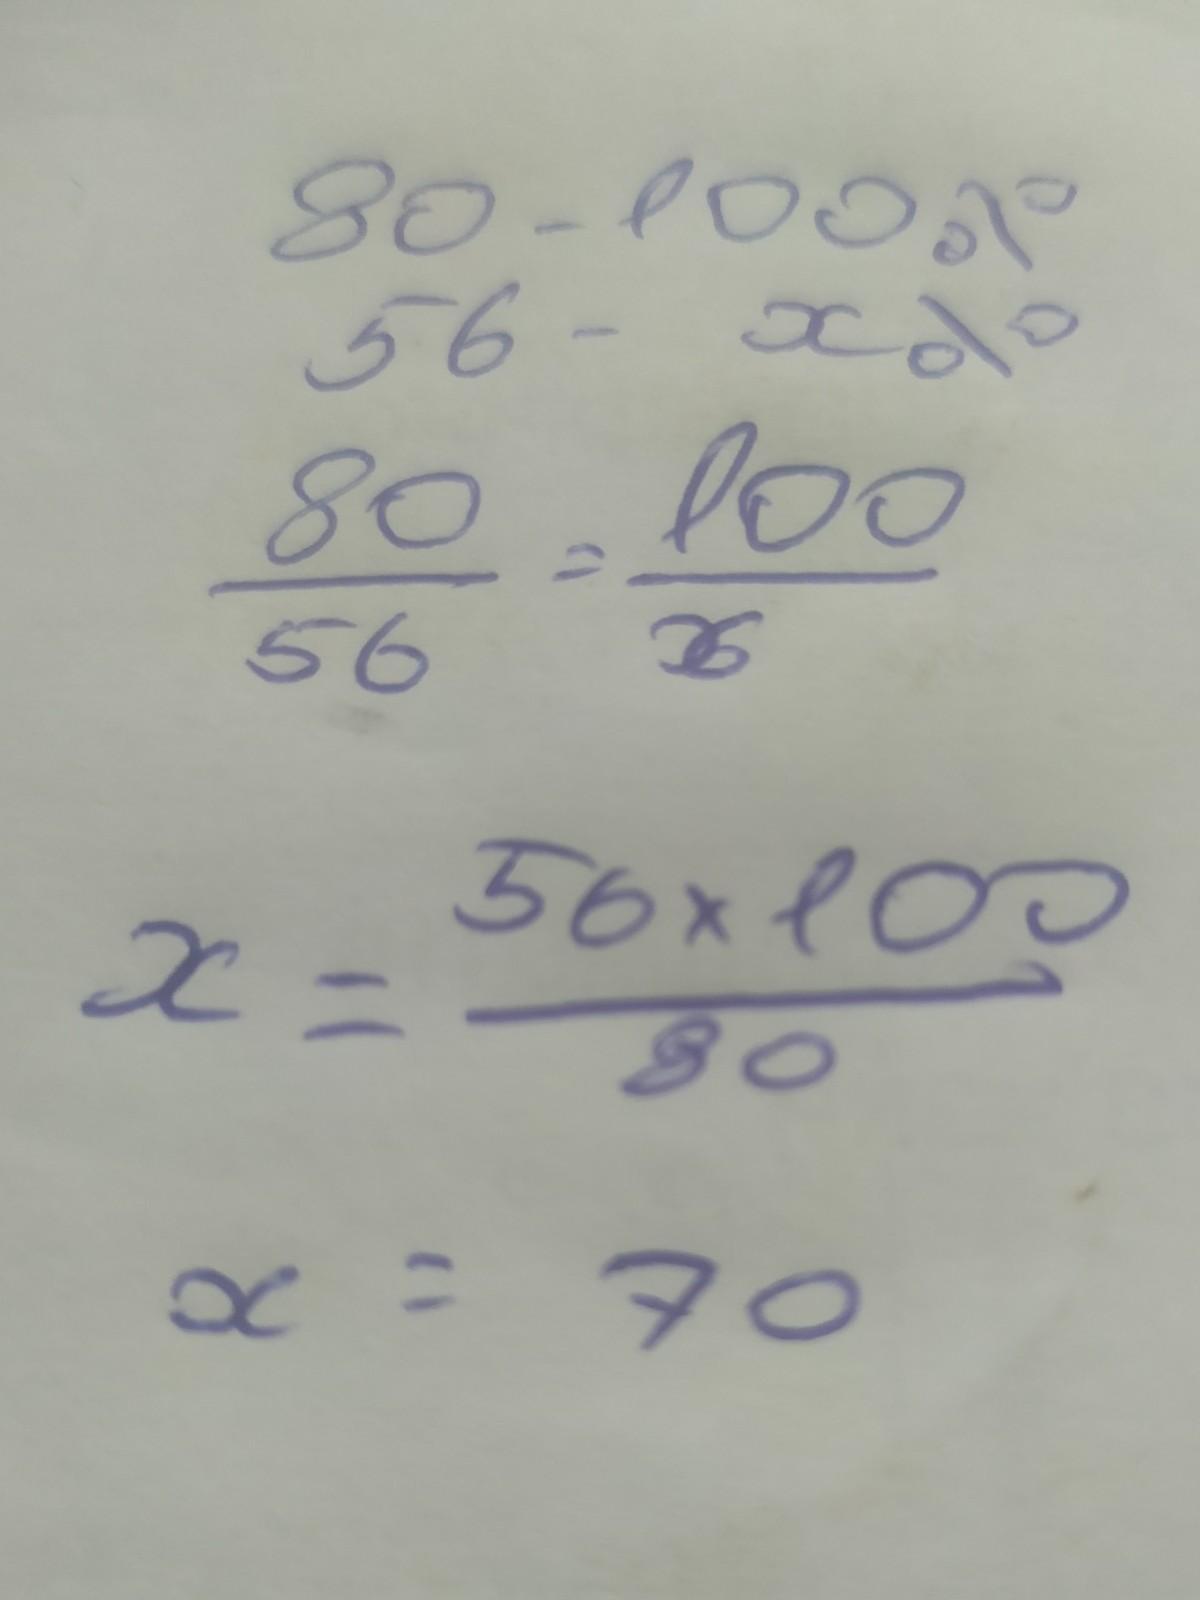 80 - 100%
56 - x%
80/56 = 100/x
x = 56×100/80
x = 70